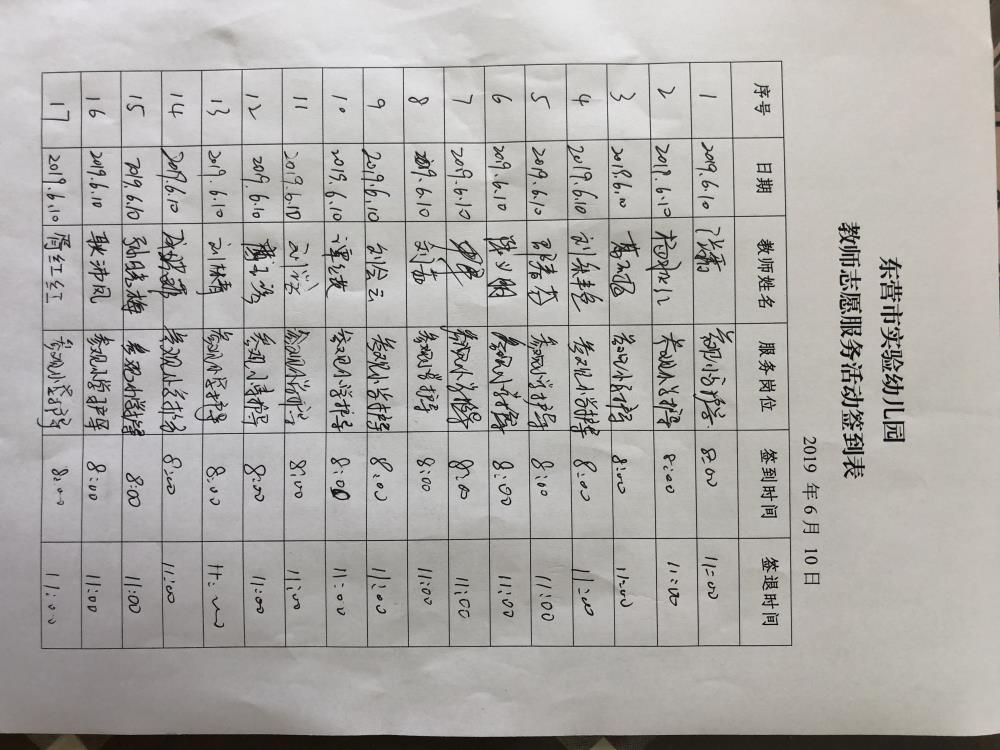 东营市实验幼儿园
教师志愿服务活动签到表
2019 年 6 月 10 日
序号 日期 教师姓名 服务岗位 签到时间 签退时间
1 2019.6.10 参观小学护导 8:00 11:00
2 2019.6.10 参观小学护导 8:00 11:00
3 2019.6.10 参观小学护导 8:00 11:00
4 2019.6.10 参观小学护导 8:00 11:00
5 2019.6.10 参观小学护导 8:00 11:00
6 2019.6.10 参观小学护导 8:00 11:00
7 2019.6.10 参观小学护导 8:00 11:00
8 2019.6.10 参观小学护导 8:00 11:00
9 2019.6.10 刘会云 参观小学护导 8:00 11:00
10 2019.6.10 参观小学护导 8:00 11:00
11 2019.6.10 参观小学护导 8:00 11:00
12 2019.6.10 参观小学护导 8:00 11:00
13 2019.6.10 参观小学护导 8:00 11:00
14 2019.6.10 参观小学护导 8:00 11:00
15 2019.6.10 孙晓梅 参观小学护导 8:00 11:00
16 2019.6.10 耿沛凤 参观小学护导 8:00 11:00
17 2019.6.10 胥红红 参观小学护导 8:00 11:00